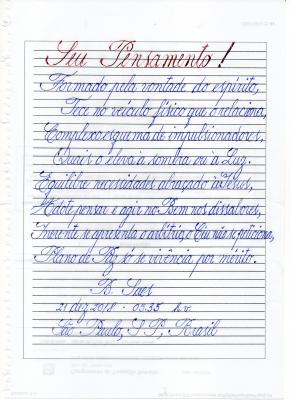 Seu Pensamento!
Formado pela vontade do espírito,
Tece no veículo físico que o relaciona,
Complexo esquema de impulsionadores,
Quais o eleva à sombra ou à Luz.
Equilibre necessidades abraçado a Jesus,
Adote pensar e agir no Bem nos dissabores,
Inerente se apresenta o arbítrio, o Céu não se posiciona,
Plano de Paz só se vivencia por mérito.
B. Saes
21 dez 2018 - 03:35 h.v.
São Paulo, S.P., Brasil